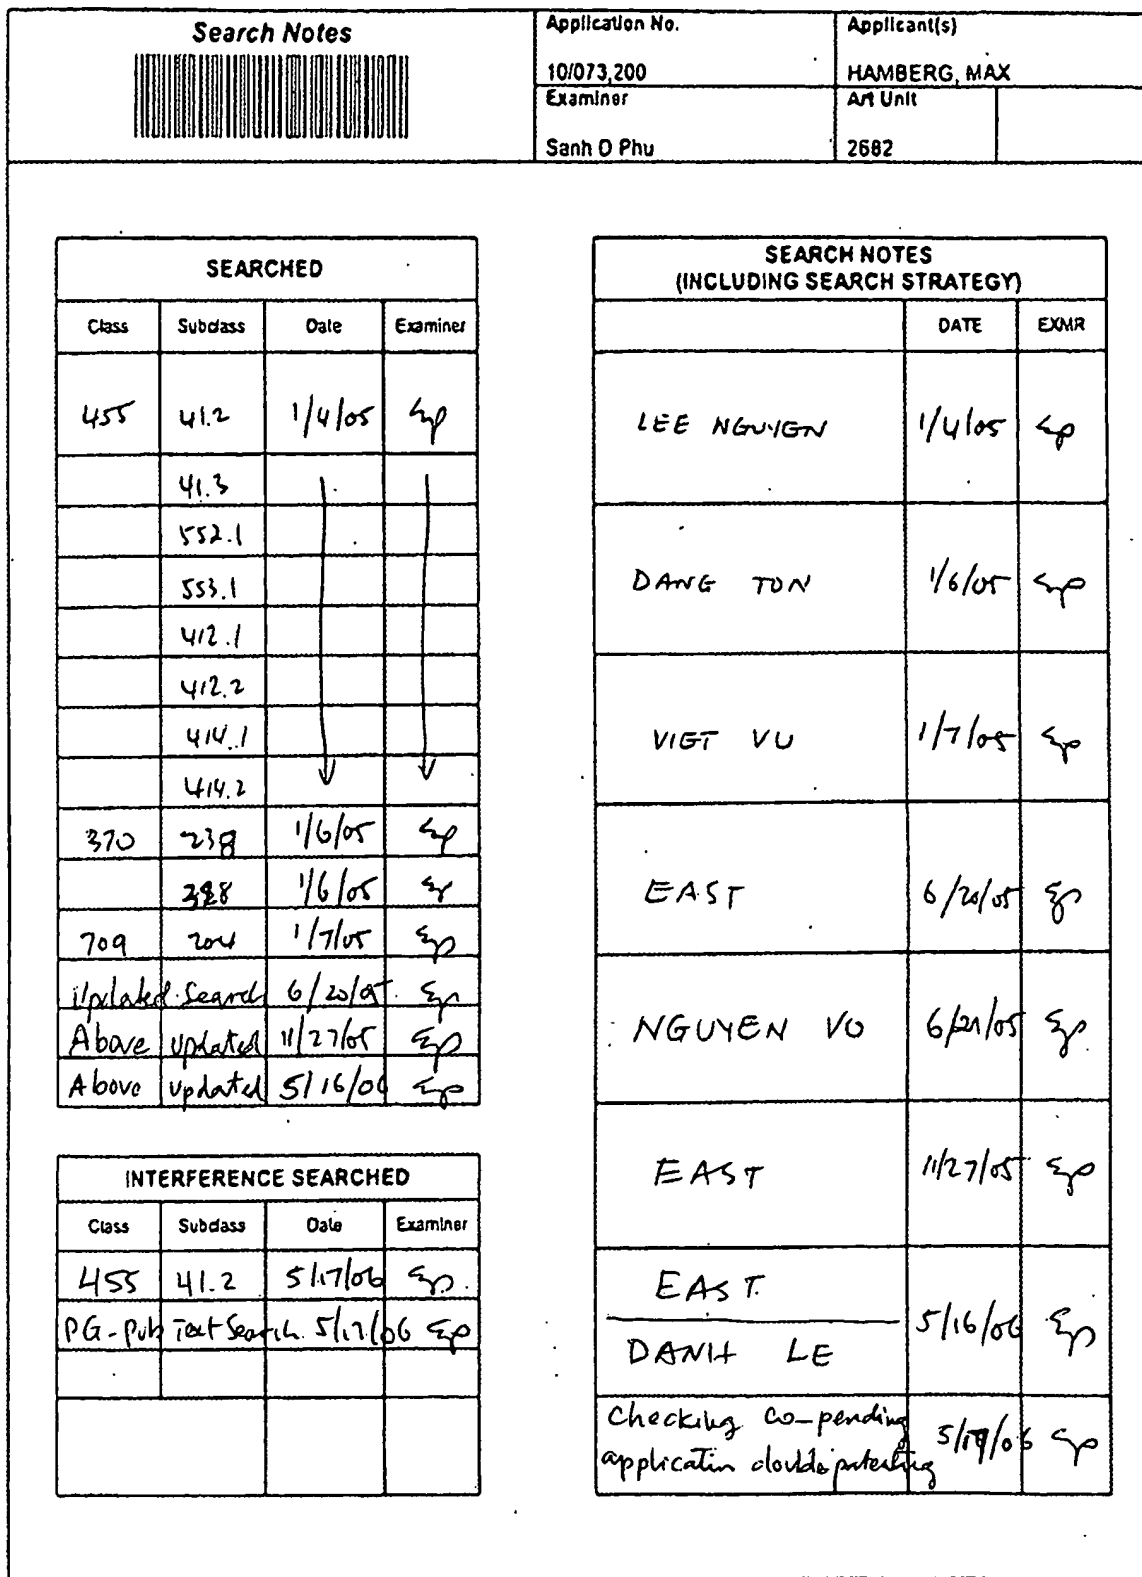 Search Notes
Application No.
Applicant(s)
10/073,200
HAMBERG, MAX
Examiner
Art Unit
Sanh D Phu
2682
SEARCHED
Class Subclass Date Examiner
455 41.2 1/4/05 Sp
41.3
552.1
553.1
412.1
412.2
414.1
414.2
370 238 1/6/05 Sp
1/6/05 Sp
709 204 1/7/05 Sp
Updated Search 6/20/05 Sp
Above updated 11/27/05 Sp
Above updated 5/16/06 Sp
INTERFERENCE SEARCHED
Class Subclass Date Examiner
455 41.2 5/17/06 Sp
PG-pub Text Search 5/17/06 Sp
SEARCH NOTES
(INCLUDING SEARCH STRATEGY)
DATE EXMR
LEE NGUYEN 1/4/05 Sp
DANG TON 1/6/05 Sp
VIET VU 1/7/05 Sp
EAST 6/20/05 Sp
NGUYEN VO 6/21/05 Sp
EAST 11/27/05 Sp
EAST
DANH LE 5/16/06 Sp
Checking co-pending
application double patenting Sp